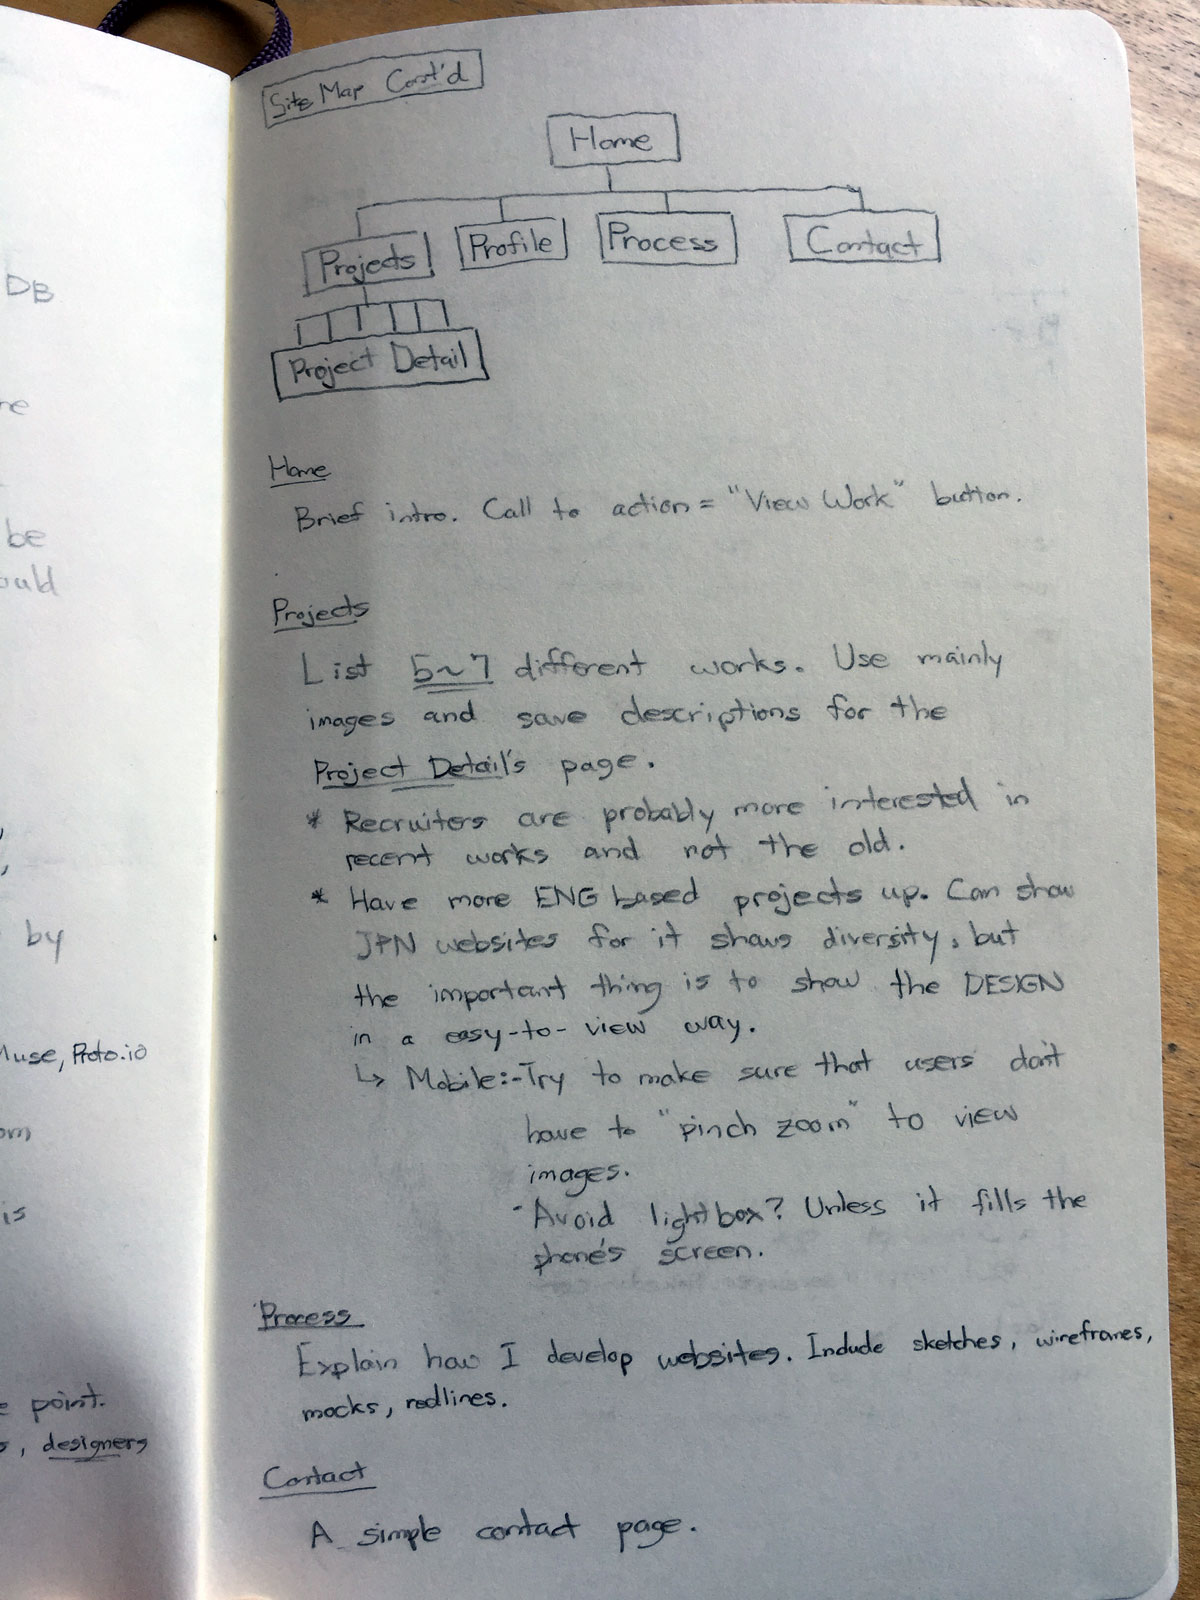 DB
ne
be
ould
by
Muse, Proto.io
om
is
e point.
s, designers
Site Map Cont'd
Home
Projects Profile Process Contact
Project Detail
Home
Brief intro. Call to action = "View Work" button.
Projects
List 5~7 different works. Use mainly
images and save descriptions for the
Project Detail's page.
* Recruiters are probably more interested in
recent works and not the old.
* Have more ENG based projects up. Can show
JPN websites for it shows diversity, but
the important thing is to show the DESIGN
in a easy-to-view way.
↳ Mobile:-Try to make sure that users don't
have to "pinch zoom" to view
images.
-Avoid lightbox? Unless it fills the
phone's screen.
Process
Explain how I develop websites. Include sketches, wireframes,
mocks, redlines.
Contact
A simple contact page.